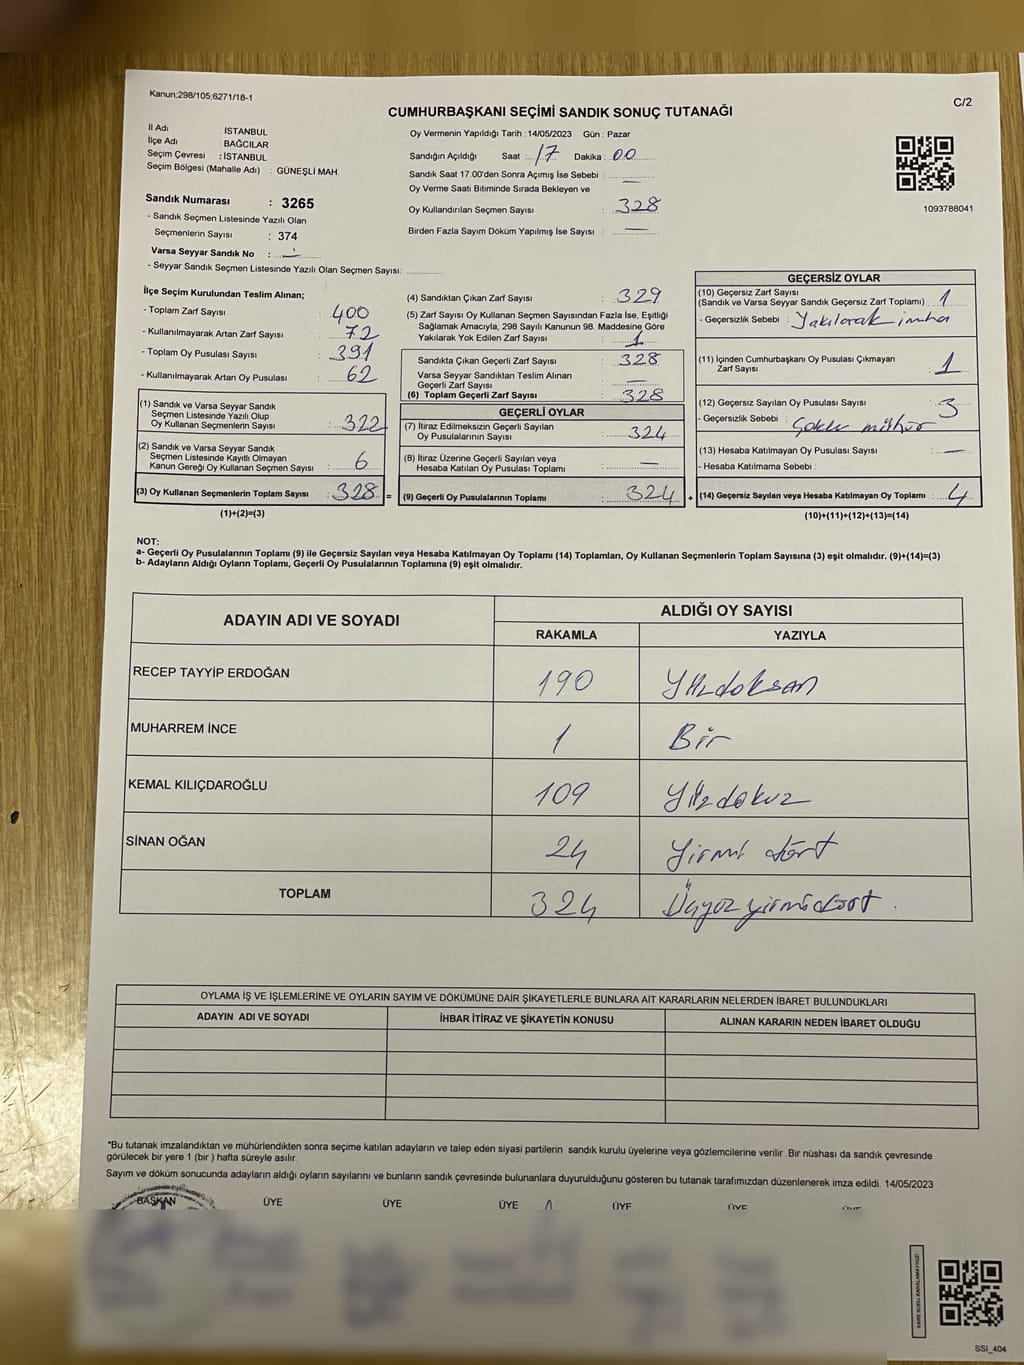 Kanun;298/105;6271/18-1
C/2
CUMHURBAŞKANI SEÇİMİ SANDIK SONUÇ TUTANAĞI
İl Adı : İSTANBUL
İlçe Adı : BAĞCILAR
Seçim Çevresi : İSTANBUL
Seçim Bölgesi (Mahalle Adı) : GÜNEŞLİ MAH.
Sandık Numarası : 3265
- Sandık Seçmen Listesinde Yazılı Olan
Seçmenlerin Sayısı : 374
Varsa Seyyar Sandık No :
- Seyyar Sandık Seçmen Listesinde Yazılı Olan Seçmen Sayısı:
Oy Vermenin Yapıldığı Tarih :14/05/2023 Gün : Pazar
Sandığın Açıldığı Saat : 17 Dakika : 00
Sandık Saat 17.00'den Sonra Açımış İse Sebebi : —
Oy Verme Saati Bitiminde Sırada Bekleyen ve
Oy Kullandırılan Seçmen Sayısı : 328
Birden Fazla Sayım Döküm Yapılmış İse Sayısı : —
1093788041
İlçe Seçim Kurulundan Teslim Alınan;
- Toplam Zarf Sayısı : 400
- Kullanılmayarak Artan Zarf Sayısı : 72
- Toplam Oy Pusulası Sayısı : 391
- Kullanılmayarak Artan Oy Pusulası : 62
(1) Sandık ve Varsa Seyyar Sandık
Seçmen Listesinde Yazılı Olup
Oy Kullanan Seçmenlerin Sayısı : 322
(2) Sandık ve Varsa Seyyar Sandık
Seçmen Listesinde Kayıtlı Olmayan
Kanun Gereği Oy Kullanan Seçmen Sayısı : 6
(3) Oy Kullanan Seçmenlerin Toplam Sayısı : 328 =
(1)+(2)=(3)
(4) Sandıktan Çıkan Zarf Sayısı : 329
(5) Zarf Sayısı Oy Kullanan Seçmen Sayısından Fazla İse, Eşitliği
Sağlamak Amacıyla, 298 Sayılı Kanunun 98. Maddesine Göre
Yakılarak Yok Edilen Zarf Sayısı : 1
Sandıkta Çıkan Geçerli Zarf Sayısı : 328
Varsa Seyyar Sandıktan Teslim Alınan
Geçerli Zarf Sayısı : —
(6) Toplam Geçerli Zarf Sayısı : 328
GEÇERLİ OYLAR
(7) İtiraz Edilmeksizin Geçerli Sayılan
Oy Pusulalarının Sayısı : 324
(8) İtiraz Üzerine Geçerli Sayılan veya
Hesaba Katılan Oy Pusulası Toplamı : —
(9) Geçerli Oy Pusulalarının Toplamı : 324 +
GEÇERSİZ OYLAR
(10) Geçersiz Zarf Sayısı
(Sandık ve Varsa Seyyar Sandık Geçersiz Zarf Toplamı) : 1
- Geçersizlik Sebebi : Yakılarak imha
(11) İçinden Cumhurbaşkanı Oy Pusulası Çıkmayan
Zarf Sayısı : 1
(12) Geçersiz Sayılan Oy Pusulası Sayısı : 3
- Geçersizlik Sebebi : mühür
(13) Hesaba Katılmayan Oy Pusulası Sayısı : —
- Hesaba Katılmama Sebebi :
(14) Geçersiz Sayılan veya Hesaba Katılmayan Oy Toplamı : 4
(10)+(11)+(12)+(13)=(14)
NOT:
a- Geçerli Oy Pusulalarının Toplamı (9) ile Geçersiz Sayılan veya Hesaba Katılmayan Oy Toplamı (14) Toplamları, Oy Kullanan Seçmenlerin Toplam Sayısına (3) eşit olmalıdır. (9)+(14)=(3)
b- Adayların Aldığı Oyların Toplamı, Geçerli Oy Pusulalarının Toplamına (9) eşit olmalıdır.
ADAYIN ADI VE SOYADI ALDIĞI OY SAYISI
RAKAMLA YAZIYLA
RECEP TAYYİP ERDOĞAN 190 Yüzdoksan
MUHARREM İNCE 1 Bir
KEMAL KILIÇDAROĞLU 109 Yüzdokuz
SİNAN OĞAN 24 Yirmi dört
TOPLAM 324 Üçyüz yirmidört
OYLAMA İŞ VE İŞLEMLERİNE VE OYLARIN SAYIM VE DÖKÜMÜNE DAİR ŞİKAYETLERLE BUNLARA AİT KARARLARIN NELERDEN İBARET BULUNDUKLARI
ADAYIN ADI VE SOYADI İHBAR İTİRAZ VE ŞİKAYETİN KONUSU ALINAN KARARIN NEDEN İBARET OLDUĞU
*Bu tutanak imzalandıktan ve mühürlendikten sonra seçime katılan adayların ve talep eden siyasi partilerin sandık kurulu üyelerine veya gözlemcilerine verilir .Bir nüshası da sandık çevresinde
görülecek bir yere 1 (bir ) hafta süreyle asılır.
Sayım ve döküm sonucunda adayların aldığı oyların sayılarını ve bunların sandık çevresinde bulunanlara duyurulduğunu gösteren bu tutanak tarafımızdan düzenlenerek imza edildi. 14/05/2023
BAŞKAN ÜYE ÜYE ÜYE ÜYE ÜYE ÜYE
KARE KODU KARALAMAYINIZ!
SSI_404